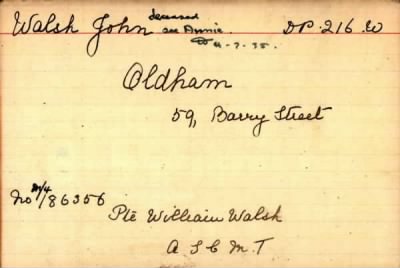 Walsh John deceased see Annie. DP. 216. W
4-7-35.
Oldham
59, Barry Street
No M/4/86356
Pte William Walsh
A S C M. T